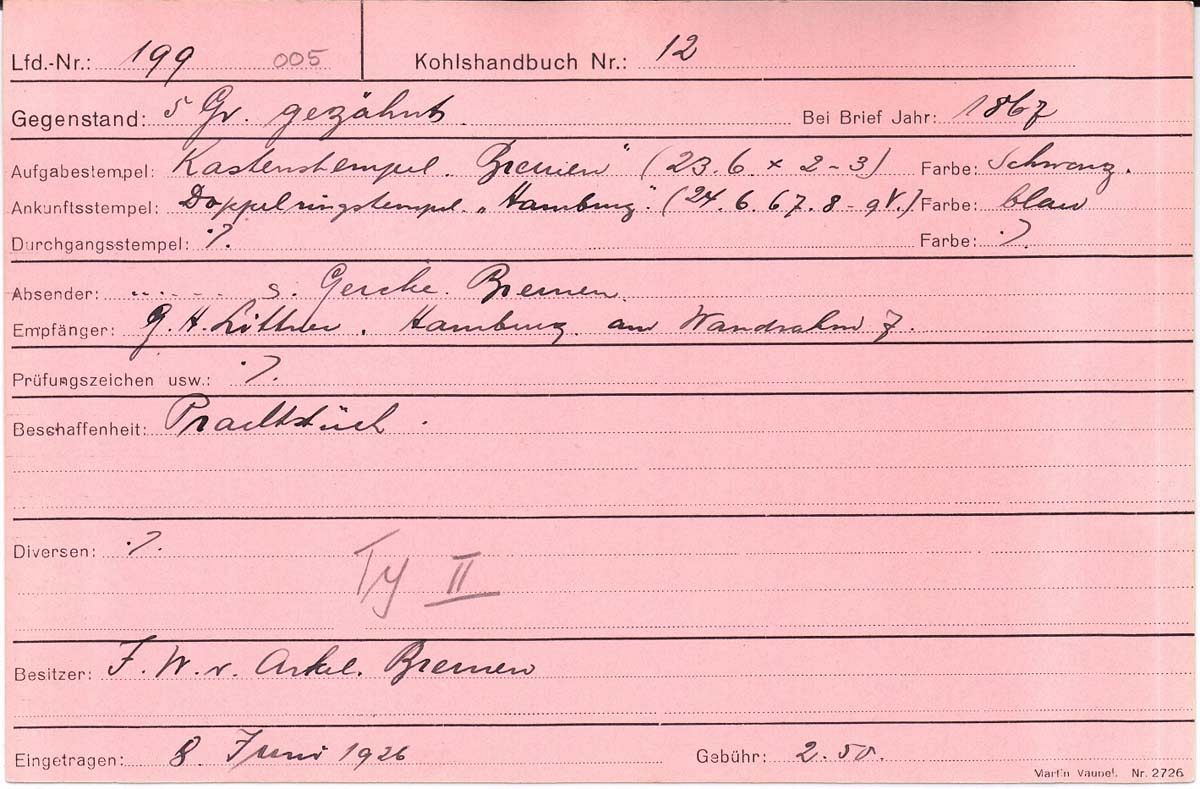 Lfd.-Nr.: 199 005 Kohlshandbuch Nr.: 12
Gegenstand: 5 Gr. gezähnt. Bei Brief Jahr: 1867
Aufgabestempel: Kastenstempel. "Bremen" (23.6. * 2-3) Farbe: Schwarz.
Ankunftsstempel: Doppelringstempel. „Hamburg". (24.6.67. 8-9 V.) Farbe: blau
Durchgangsstempel: ·/. Farbe: ·/.
Absender: ........ s. Gercke. Bremen.
Empfänger: G. H. Littner. Hamburg. am Wandrahm 7.
Prüfungszeichen usw.: ·/.
Beschaffenheit: Prachtstück.
Diversen: ·/.
Ty II
Besitzer: F. W. v. Arkel. Bremen
Eingetragen: 8. Juni 1926 Gebühr: 2.50.
Martin Vaupel. Nr. 2726